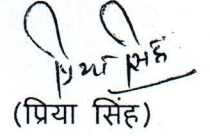 प्रिया सिंह
(प्रिया सिंह)